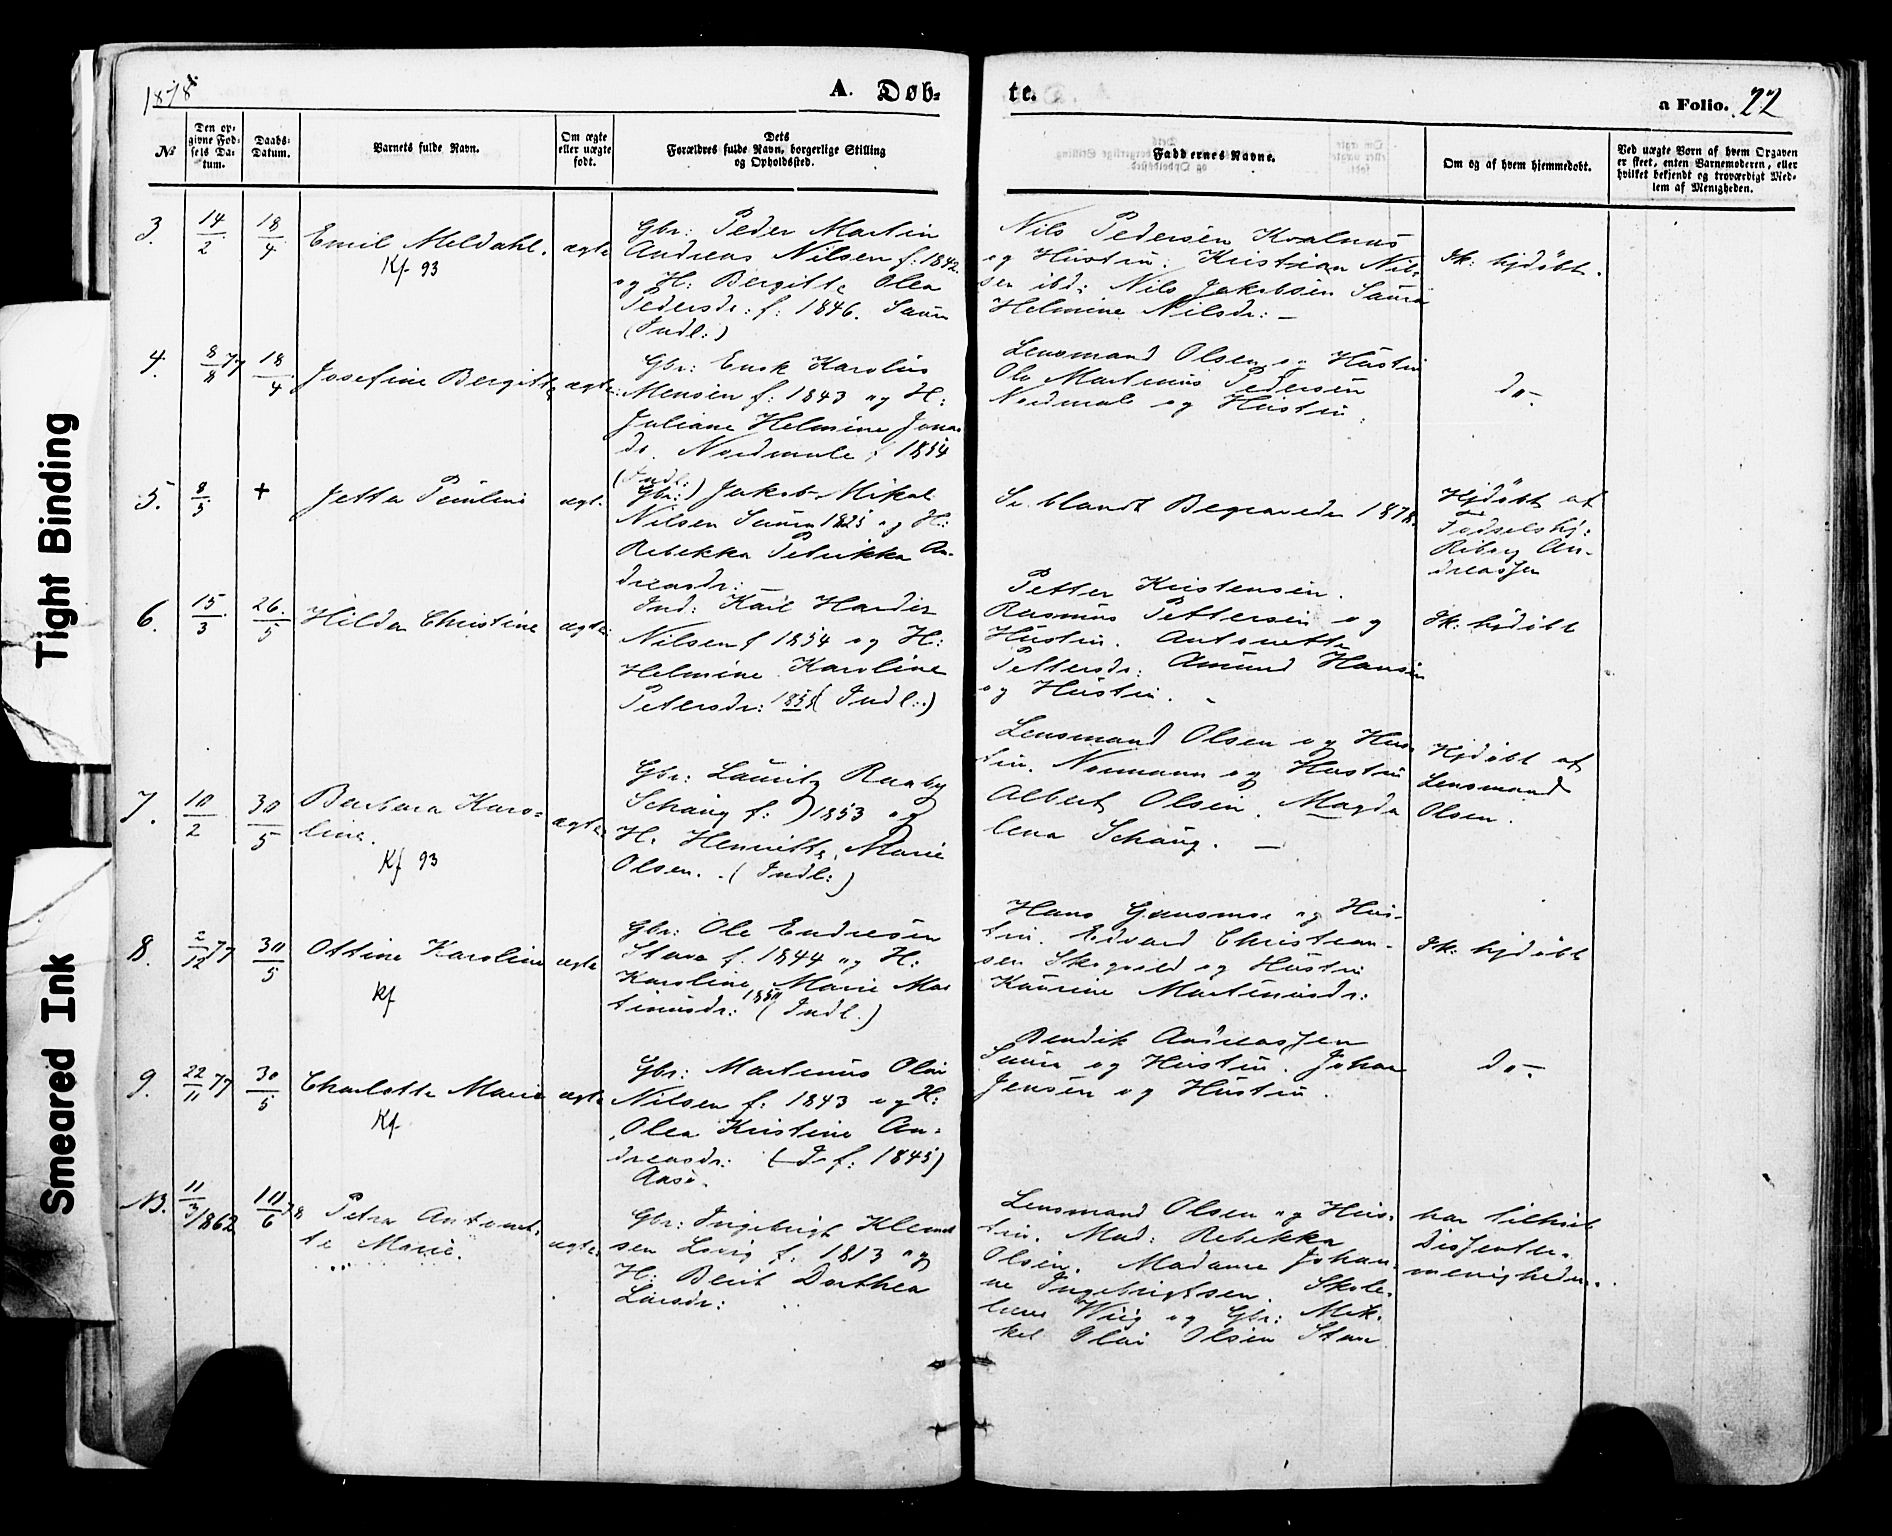 1878
A. Døb-
te.
a Folio. 22
№
Den op-
givne Fød-
sels Da-
tum.
Daabs-
Datum.
Barnets fulde Navn.
Om ægte
eller uægte
født.
Dets
Forældres fulde Navn, borgerlige Stilling
og Opholdssted.
Faddernes Navne.
Om og af hvem hjemmedøbt.
Ved uægte Børn af hvem Opgaven
er skeet, enten Barnemoderen, eller
hvilket bekjendt og troværdigt Med-
lem af Menigheden.
3.
14/2
18/4
Emil Meldahl.
Kf 93
ægte
Gbr: Peder Martin
Andreas Nilsen f: 1842
og H: Bergitte Olea
Pedersdr: f: 1846.
(Indl:)
Nils Pedersen Kvalnæs
og Hustru. Kristian Nil-
sen ibd: Nils Jakobsen Saura
Helmine Nilsdr: –
Sk: hjdøbt.
4.
8/8 77
18/4
Josefine Bergitte
ægte
Gbr: Karolius
Mensen f: 1843 og H:
Juliane Helmine Jona
dr. Nordmule f 1854
(Indl:)
Lensmand Olsen og Hustru
Ole Martinus Pedersen
Nordmule og Hustru.
do.
5.
8/5
+
Jetta Pauline
ægt.
Gbr: Jakob Mikal
Nilsen Saura 1825 og H:
Rebekka Petrikka An-
dreasdr:
Se blandt Begravede 1878.
Hjdøbt af
Fødselshj:
Riborg An-
dreassen
6.
15/3
26/5
Hilda Christine
ægte
Ind: Karl Hardis
Nilsen f 1854 og H:
Helmine Karoline
Petersdr: (Indl:)
Petter Kristensen.
Rasmus Pettersen og
Hustru. Antonette
Pettersdr: Amund Hansen
og Hustru.
Sk: hjdøbt
7.
10/2
30/5
Barbara Karo-
line.
Kf 93
ægte
Gbr: Lauritz Raaby
Schang f: 1853 og
H. Henritte Marie
Olsen. (Indl:)
Lensmand Olsen og Hus-
tru. Normann og Hustru
Albert Olsen. Magda
lena Schang. –
Hjdøbt af
Lensmand
Olsen.
8.
2/12 77
30/5
Ottine Karoline
Kf
ægte
Gbr: Ole Endresen
Stave f. 1844 og H:
Karoline Marie Mar
tinusdr: 1850 (Indl.)
Hans Grønmo og Hus-
tru. Edvard Christian-
sen Skogvold og Hustru
Kaurine Martinusdr:
Sk: hjdøbt
9.
22/11 77
30/5
Charlotte Marie
Kf
ægte
Gbr: Martinus Olai
Nilsen f: 1843 og H:
Olea Kristine An-
dreasdr: (Is f: 1845)
Aase.
Bendik Andreassen
Saura og Hustru. Johan
Jensen og Hustru.
do.
NB.
11/3 1862
10/6 78
Petra Antonet-
te Marie.
ægte
Gbr: Ingebrigt Klemet
sen Lovig f. 1813 og
H: Berit Dorthea
Larsdr:
Lensmand Olsen og Hus-
tru. Mad: Rebekka
Olsen. Madame Johan
ne Ingebrigtsen. Skole-
lærer Wiig og Gbr: Mik-
kel Olai Olsen Stave
har tilhørt
Dissenter-
menigheden.
Tight Binding
Smeared Ink